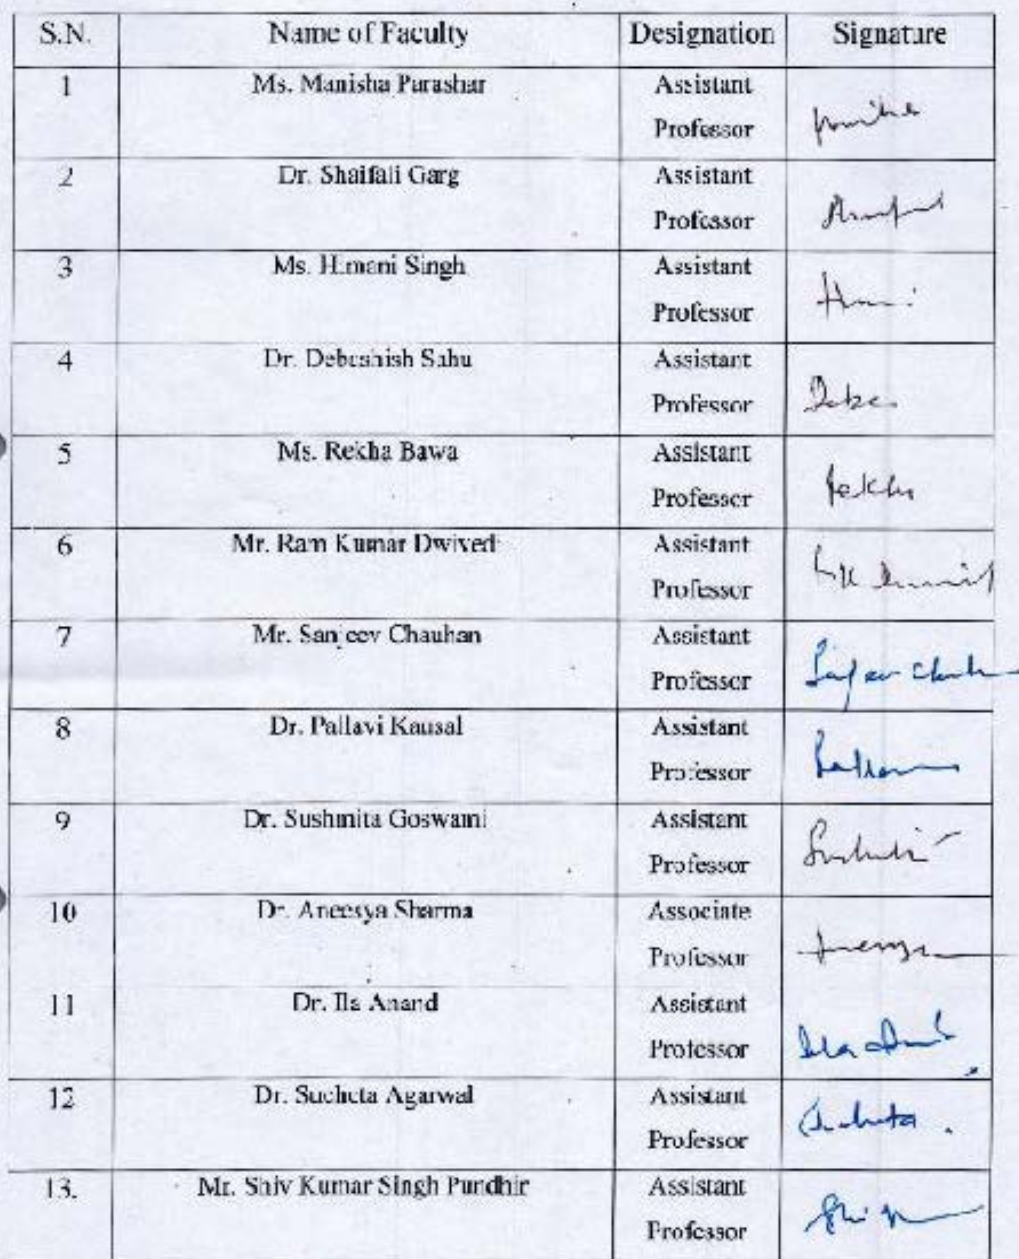 S.N. Name of Faculty Designation Signature
1 Ms. Manisha Parashar Assistant
Professor
2 Dr. Shaifali Garg Assistant
Professor
3 Ms. Himani Singh Assistant
Professor
4 Dr. Debashish Sahu Assistant
Professor
5 Ms. Rekha Bawa Assistant
Professor Rekha
6 Mr. Ram Kumar Dwivedi Assistant
Professor
7 Mr. Sanjeev Chauhan Assistant
Professor
8 Dr. Pallavi Kausal Assistant
Professor
9 Dr. Sushmita Goswami Assistant
Professor
10 Dr. Aneesya Sharma Associate
Professor
11 Dr. Ila Anand Assistant
Professor Ila Anand
12 Dr. Sucheta Agarwal Assistant
Professor Sucheta
13. Mr. Shiv Kumar Singh Pundhir Assistant
Professor